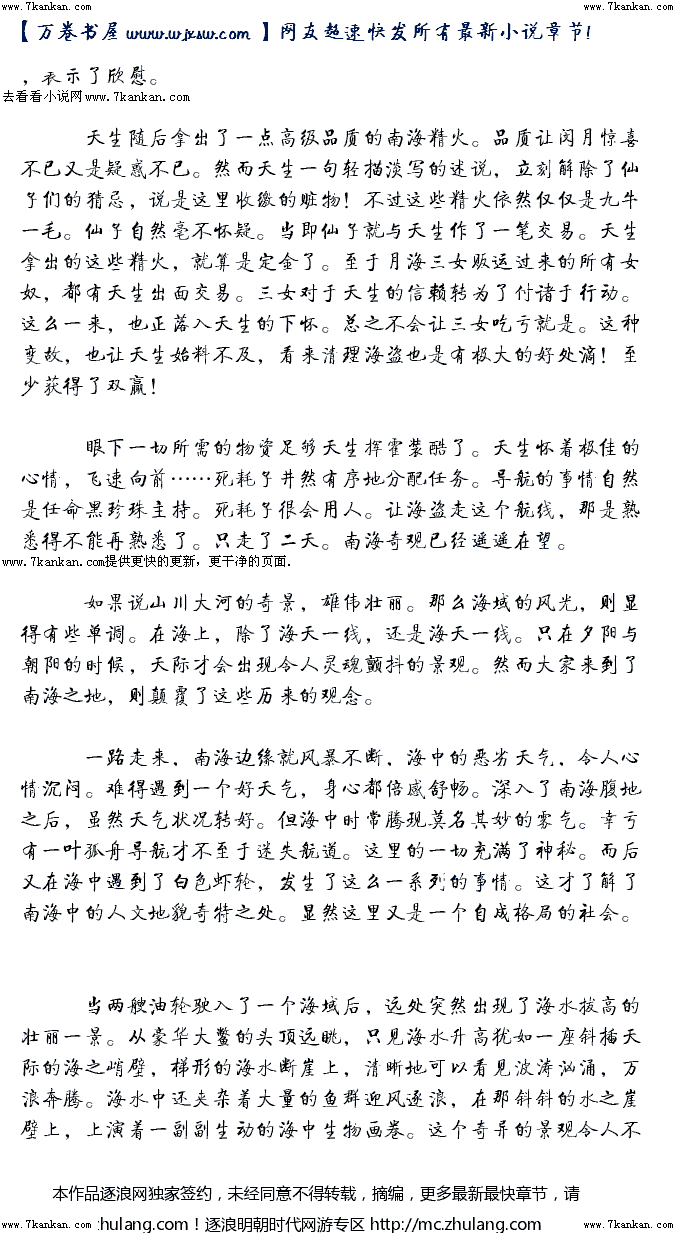 www.7kankan.com www.7kankan.com
【万卷书屋 www.wjxsw.com 】网友超速快发所有最新小说章节!
，表示了欣慰。
去看看小说网www.7kankan.com
天生随后拿出了一点高级品质的南海精火。品质让闵月惊喜
不已又是疑惑不已。然而天生一句轻描淡写的述说，立刻解除了仙
子们的猜忌，说是这里收缴的赃物！不过这些精火依然仅仅是九牛
一毛。仙子自然毫不怀疑。当即仙子就与天生作了一笔交易。天生
拿出的这些精火，就算是定金了。至于月海三女贩运过来的所有女
奴，都有天生出面交易。三女对于天生的信赖转为了付诸于行动。
这么一来，也正落入天生的下怀。总之不会让三女吃亏就是。这种
变故，也让天生始料不及，看来清理海盗也是有极大的好处滴！至
少获得了双赢！
眼下一切所需的物资足够天生挥霍装酷了。天生怀着极佳的
心情，飞速向前……死耗子井然有序地分配任务。导航的事情自然
是任命黑珍珠主持。死耗子很会用人。让海盗走这个航线，那是熟
悉得不能再熟悉了。只走了二天。南海奇观已经遥遥在望。
www.7kankan.com提供更快的更新，更干净的页面.
如果说山川大河的奇景，雄伟壮丽。那么海域的风光，则显
得有些单调。在海上，除了海天一线，还是海天一线。只在夕阳与
朝阳的时候，天际才会出现令人灵魂颤抖的景观。然而大家来到了
南海之地，则颠覆了这些历来的观念。
一路走来，南海边缘就风暴不断，海中的恶劣天气，令人心
情沉闷。难得遇到一个好天气，身心都倍感舒畅。深入了南海腹地
之后，虽然天气状况转好。但海中时常腾现莫名其妙的雾气。幸亏
有一叶孤舟导航才不至于迷失航道。这里的一切充满了神秘。而后
又在海中遇到了白色虾轮，发生了这么一系列的事情。这才了解了
南海中的人文地貌奇特之处。显然这里又是一个自成格局的社会。
当两艘油轮驶入了一个海域后，远处突然出现了海水拔高的
壮丽一景。从豪华大鳖的头顶远眺，只见海水升高犹如一座斜插天
际的海之峭壁，梯形的海水断崖上，清晰地可以看见波涛汹涌，万
浪奔腾。海水中还夹杂着大量的鱼群迎风逐浪，在那斜斜的水之崖
壁上，上演着一副副生动的海中生物画卷。这个奇异的景观令人不
本作品逐浪网独家签约，未经同意不得转载，摘编，更多最新最快章节，请
www.7kankan.com zhulang.com！逐浪明朝时代网游专区 http://mc.zhulang.com www.7kankan.com